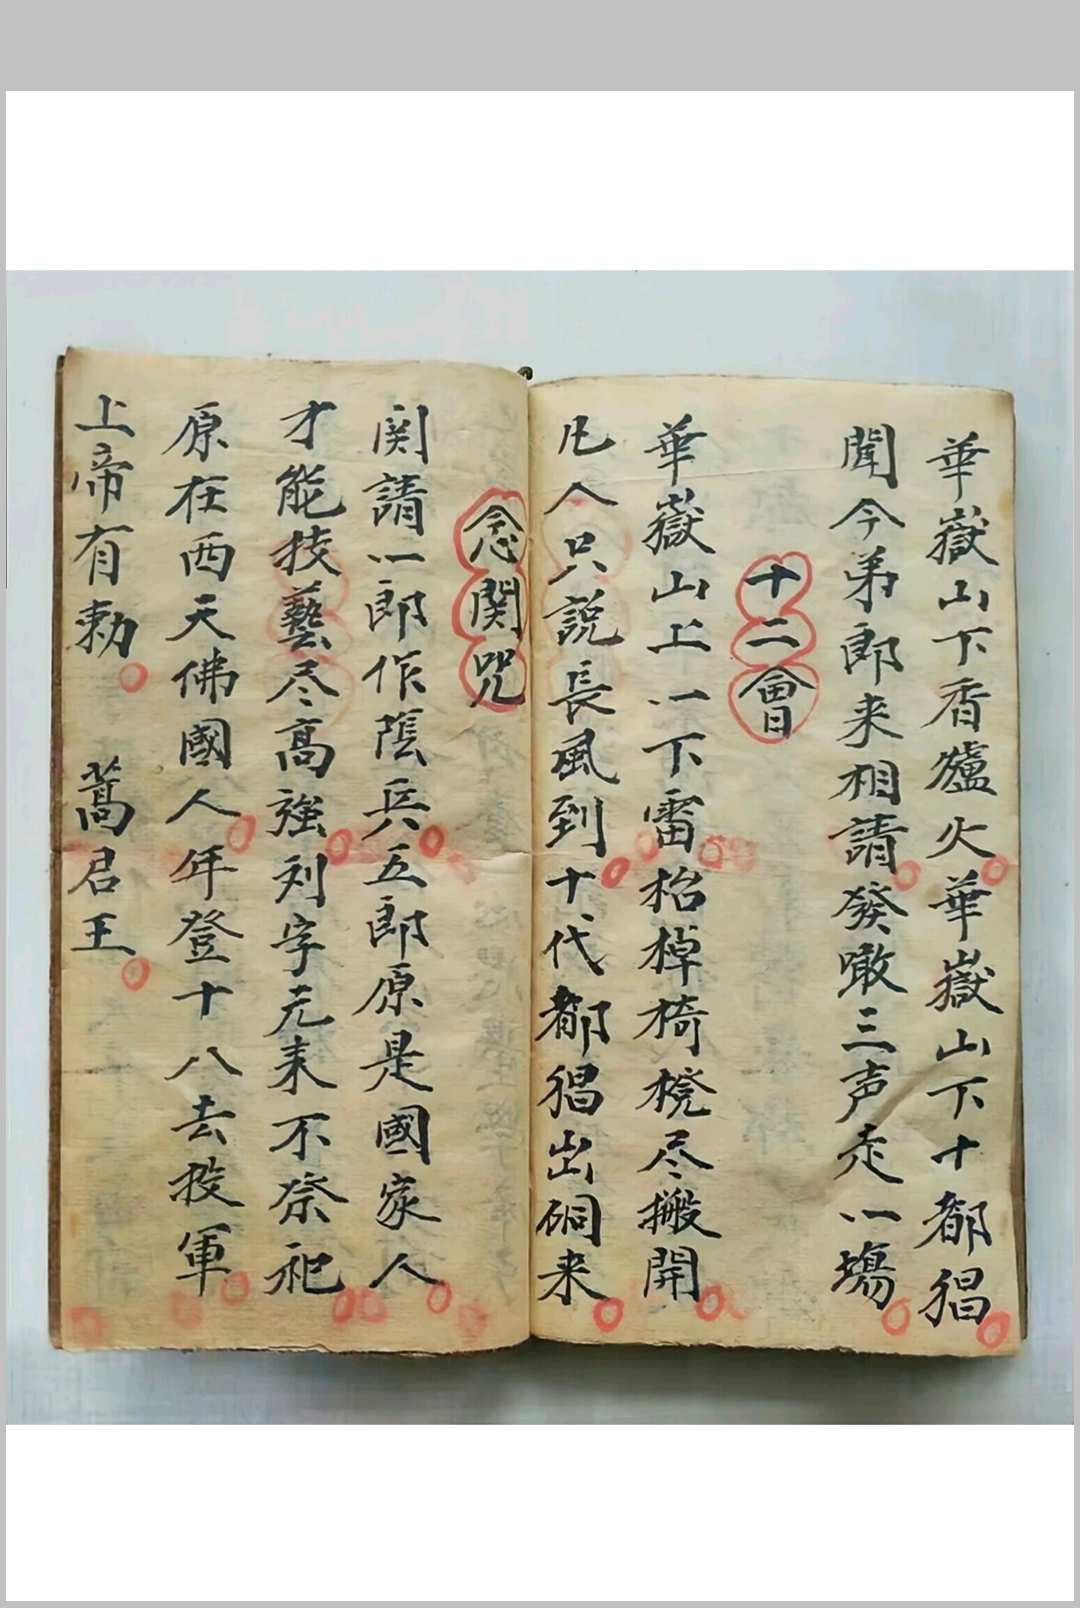 華嶽山下香爐火華嶽山下十都猖
聞今弟郎来相請發噉三声走一塲
十二會
華嶽山上一下雷枱棹椅櫈尽搬開
凡人只説長風到十代都猖出硐来
念関咒
関請一郎作隂兵五郎原是國家人
才能技藝尽高強列字元来不祭祀
原在西天佛國人年登十八去投軍
上帝有勅 蒿君王